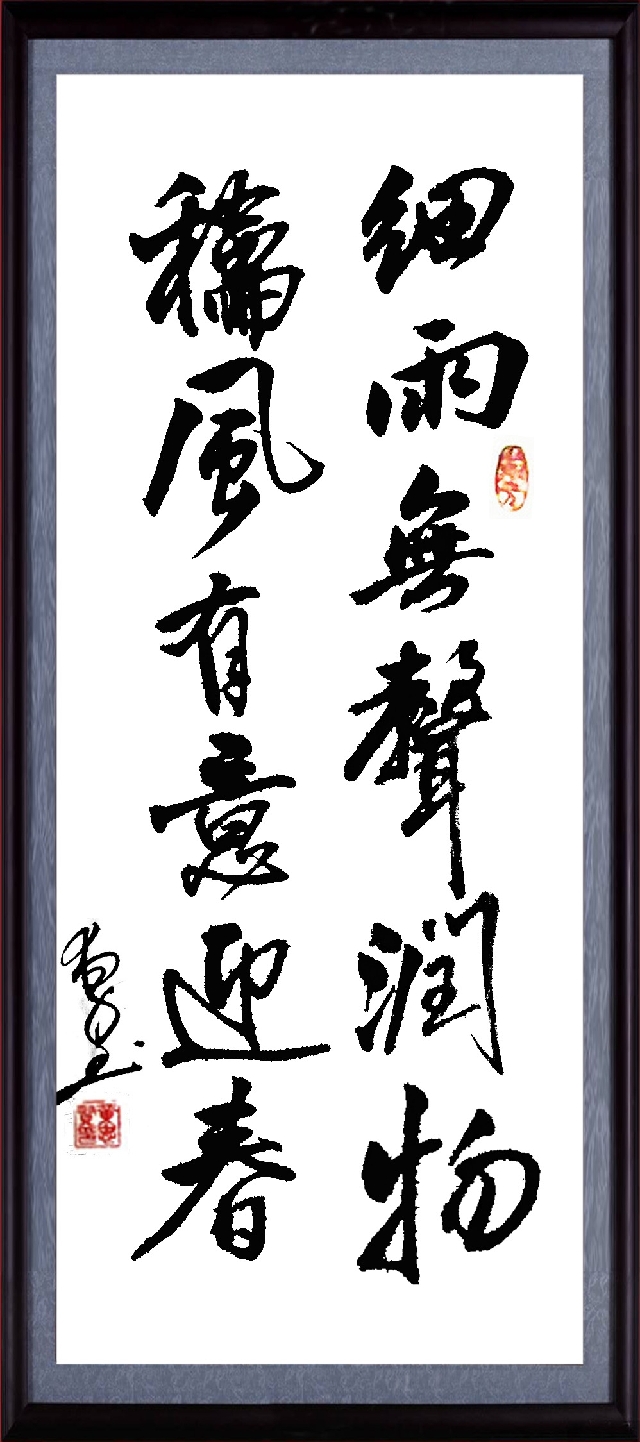 細雨無聲潤物
龢風有意迎春